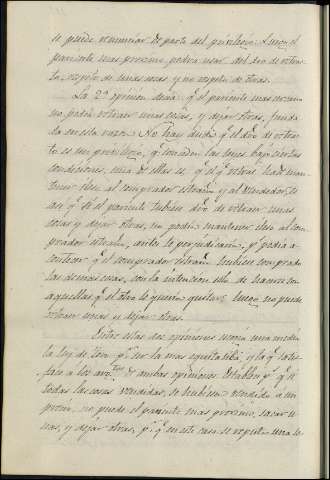 se puede renunciar de parte del privilegio. Luego el
pariente mas proximo podrá usar del dro de retrac
to respeto de unas cosas y no respeto de otras.
La 2ª opinion decia q.e el pariente mas cercano
no podia retraer unas cosas, y dejar otras, funda
da en esta razon. No hay duda q.e el dro de retrac
to es un privilegio, q.e conceden las leyes bajo ciertas
condiciones, una de ellas es q.e el q.e retrae ha de man-
tener ileso al comprador estraño y al vendedor, es
asi q.e si el pariente tubiese dro de retraer unas
cosas y dejar otras, no podria mantener ileso al com
prador estraño, antes le perjudicaria, p.s podia a-
contecer q.e el comprador estraño hubiese comprado
las demas cosas, con la intencion sola de hacerse con
aquellas q.e el otro le queria quitar, luego no puede
retraer unas y dejar otras.
Entre estas dos opiniones seguia una media
la ley de Toro p.r ser la mas equitativa, y la q.e satis-
face a los arg.tos de ambas opiniones. Establece p.s q.e si
todas las cosas vendidas, se hubiesen vendido a un
precio, no puede el pariente mas proximo, sacar u-
nas, y dejar otras, p.s q.e en este caso se reputan una so